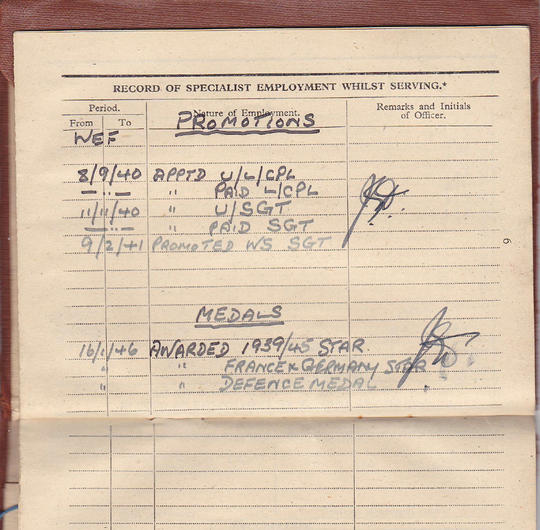 RECORD OF SPECIALIST EMPLOYMENT WHILST SERVING.*
Period. Nature of Employment. Remarks and Initials
From To of Officer.
PROMOTIONS
WEF
8/9/40 APPTD U/L/CPL
— .. — " PAID L/CPL
11/11/40 " U/SGT
— .. — " PAID SGT
9/2/41 PROMOTED WS SGT
6
MEDALS
16/1/46 AWARDED 1939/45 STAR.
" " FRANCE & GERMANY STAR
" DEFENCE MEDAL